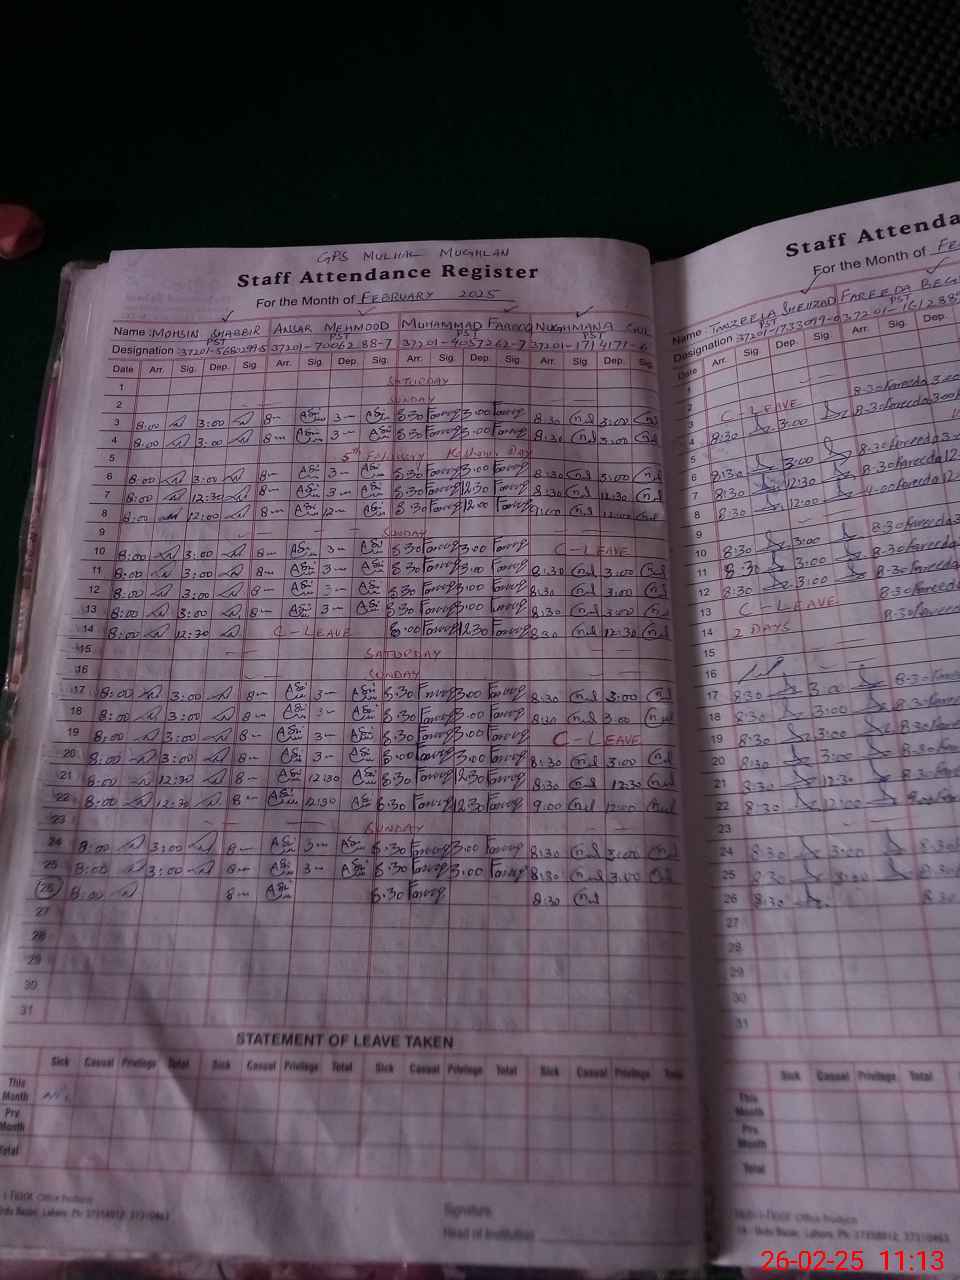 GPS MULHAL MUGHLAN
Staff Attendance Register
For the Month of FEBRUARY 2025
Name: MOHSIN SHABBIR ANSAR MEHMOOD MUHAMMAD FAROOQ NUGHMANA GUL
PST PST PST PST
Designation 37201-5680299-5 37201-7006288-7 37201-4057262-7 37201-1714171-6
Date Arr. Sig. Dep. Sig. Arr. Sig. Dep. Sig. Arr. Sig. Dep. Sig. Arr. Sig. Dep. Sig.
1 SATURDAY
2 SUNDAY
3 8:00 3:00 8— 3— 8:30 Farooq 3:00 Farooq 8:30 3:00
4 8:00 3:00 8— 3— 8:30 Farooq 3:00 Farooq 8:30 3:00
5 5th February Kashmir Day
6 8:00 3:00 8— 3— 8:30 Farooq 3:00 Farooq 8:30 3:00
7 8:00 12:30 8— 3— 8:30 Farooq 12:30 Farooq 8:30 12:30
8 8:00 12:00 8— 12— 8:30 Farooq 12:00 Farooq 9:00 12:00
9 SUNDAY
10 8:00 3:00 8— 3— 8:30 Farooq 3:00 Farooq C-LEAVE
11 8:00 3:00 8— 3— 8:00 Farooq 3:00 Farooq 8:30 3:00
12 8:00 3:00 8— 3— 8:30 Farooq 3:00 Farooq 8:30 3:00
13 8:00 3:00 8— 3— 8:30 Farooq 3:00 Farooq 8:30 3:00
14 8:00 12:30 C-LEAVE 8:00 Farooq 12:30 Farooq 8:30 12:30
15 SATURDAY
16 SUNDAY
17 8:00 3:00 8— 3— 8:30 Farooq 3:00 Farooq 8:30 3:00
18 8:00 3:00 8— 3— 8:30 Farooq 3:00 Farooq 8:30 3:00
19 8:00 3:00 8— 3— 8:30 Farooq 3:00 Farooq C-LEAVE
20 8:00 3:00 8— 3— 8:00 Farooq 3:00 Farooq 8:30 3:00
21 8:00 12:30 8— 12:30 8:30 Farooq 12:30 Farooq 8:30 12:30
22 8:00 12:30 8— 12:30 8:30 Farooq 12:30 Farooq 9:00 12:00
23 SUNDAY
24 8:00 3:00 8— 3— 8:30 Farooq 3:00 Farooq 8:30 3:00
25 8:00 3:00 8— 3— 8:30 Farooq 3:00 Farooq 8:30 3:00
26 8:00 8— 8:30 Farooq 8:30
27
28
29
30
31
STATEMENT OF LEAVE TAKEN
Sick Casual Privilege Total Sick Casual Privilege Total Sick Casual Privilege Total Sick Casual Privilege Total
This Month
Prv Month
Total
Signature
Head of Institution
Staff Attenda
For the Month of FE
Name: TANZEELA SHEHZAD FAREEDA BEG
PST PST
Designation
Date Arr. Sig. Dep. Sig. Arr. Sig. Dep.
1
2
3 C-LEAVE 8:30 Fareeda 3:00
4 8:30 3:00 8:30 Fareeda 3:00
5
6 8:30 3:00 8:30 Fareeda 3
7 8:30 12:30 8:30 Fareeda 12
8 8:30 12:00 Fareeda 12
9
10 8:30 3:00 8:30 Fareeda
11 8:30 3:00 8:30 Fareeda
12 8:30 3:00 8:30 Fareeda
13 C-LEAVE 8:30 Fareeda
14 2 DAYS 8:30 Fareeda
15
16
17 8:30 3:00 8:30
18 8:30 3:00 8:30
19 8:30 3:00 8:30
20 8:30 3:00 8:30
21 8:30 12:30 8:30
22 8:30 12:00
23
24 8:30 3:00 8:30
25 8:30 3:00 8:30
26 8:30 8:30
27
28
29
30
31
Sick Casual Privilege Total
This Month
Prv Month
Total
26-02-25 11:13